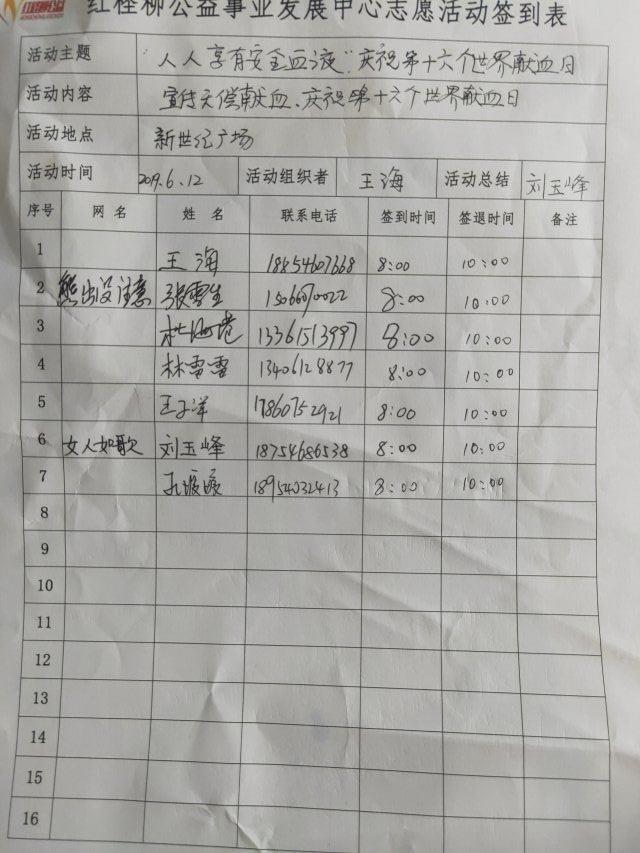 红柽柳公益事业发展中心志愿活动签到表
活动主题 "人人享有安全血液"庆祝第十六个世界献血日
活动内容 宣传无偿献血、庆祝第十六个世界献血日
活动地点 新世纪广场
活动时间 2019.6.12 活动组织者 王海 活动总结 刘玉峰
序号 网名 姓名 联系电话 签到时间 签退时间 备注
1 王海 18854607668 8:00 10:00
2 熊出没注意 张雪生 8:00 10:00
3 13361513997 8:00 10:00
4 林雪雪 13406128877 8:00 10:00
5 王子洋 17860752921 8:00 10:00
6 女人如歌 刘玉峰 18754686538 8:00 10:00
7 孔媛媛 18954032413 8:00 10:00
8
9
10
11
12
13
14
15
16